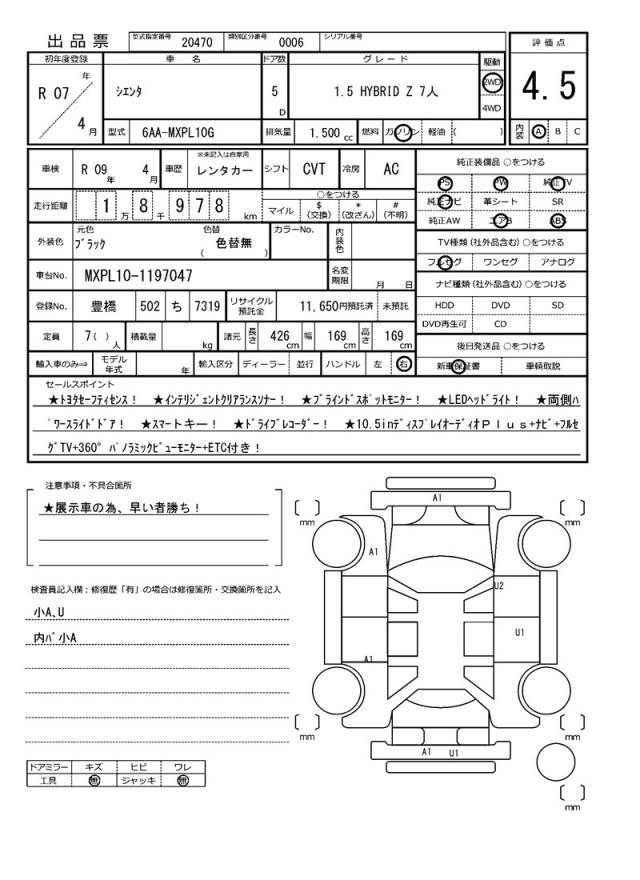 出品票 型式指定番号 20470 類別区分番号 0006 シリアル番号
評価点
4.5
内装 A B C
初年度登録 車名 ドア数 グレード 駆動
R 07 年 4 月 シエンタ 5 D 1.5 HYBRID Z 7人 2WD 4WD
型式 6AA-MXPL10G 排気量 1.500 cc 燃料 ガソリン 軽油 ( )
車検 R 09 年 4 月 車歴 ※未記入は自家用 レンタカー シフト CVT 冷房 AC
走行距離 1 万 8 千 9 7 8 km ○をつける マイル $ (交換) * (改ざん) # (不明)
外装色 元色 ブラック 色替 ( 色替無 ) カラーNo. 内装色
車台No. MXPL10-1197047 名変期限 月 日
登録No. 豊橋 502 ち 7319 リサイクル預託金 11,650円預託済 未預託
定員 7( ) 人 積載量 kg 諸元 長さ 426 cm 幅 169 cm 高さ 169 cm
輸入車のみ⇒ モデル年式 年 輸入区分 ディーラー 並行 ハンドル 左 右
純正装備品 ○をつける
PS PW 純正TV
純正ナビ 革シート SR
純正AW エアB ABS
TV種類 (社外品含む) ○をつける
フルセグ ワンセグ アナログ
ナビ種類 (社外品含む) ○をつける
HDD DVD SD
DVD再生可 CD
後日発送品 ○をつける
新車保証書 車輌取説
セールスポイント
★トヨタセーフティセンス! ★インテリジェントクリアランスソナー! ★ブラインドスポットモニター! ★LEDヘッドライト! ★両側ハ
゚ワースライドドア! ★スマートキー! ★ドライブレコーダー! ★10.5inディスプレイオーディオPlus+ナビ+フルセ
グTV+360°パノラミックビューモニター+ETC付き!
注意事項・不具合箇所
★展示車の為、早い者勝ち!
検査員記入欄:修復歴「有」の場合は修復箇所・交換箇所を記入
小A､U
内ﾊﾞ小A
ドアミラー キズ ヒビ ワレ
工具 無 ジャッキ 無
A1
mm mm
A1
U2
U1
A1
mm mm
A1 U1
mm